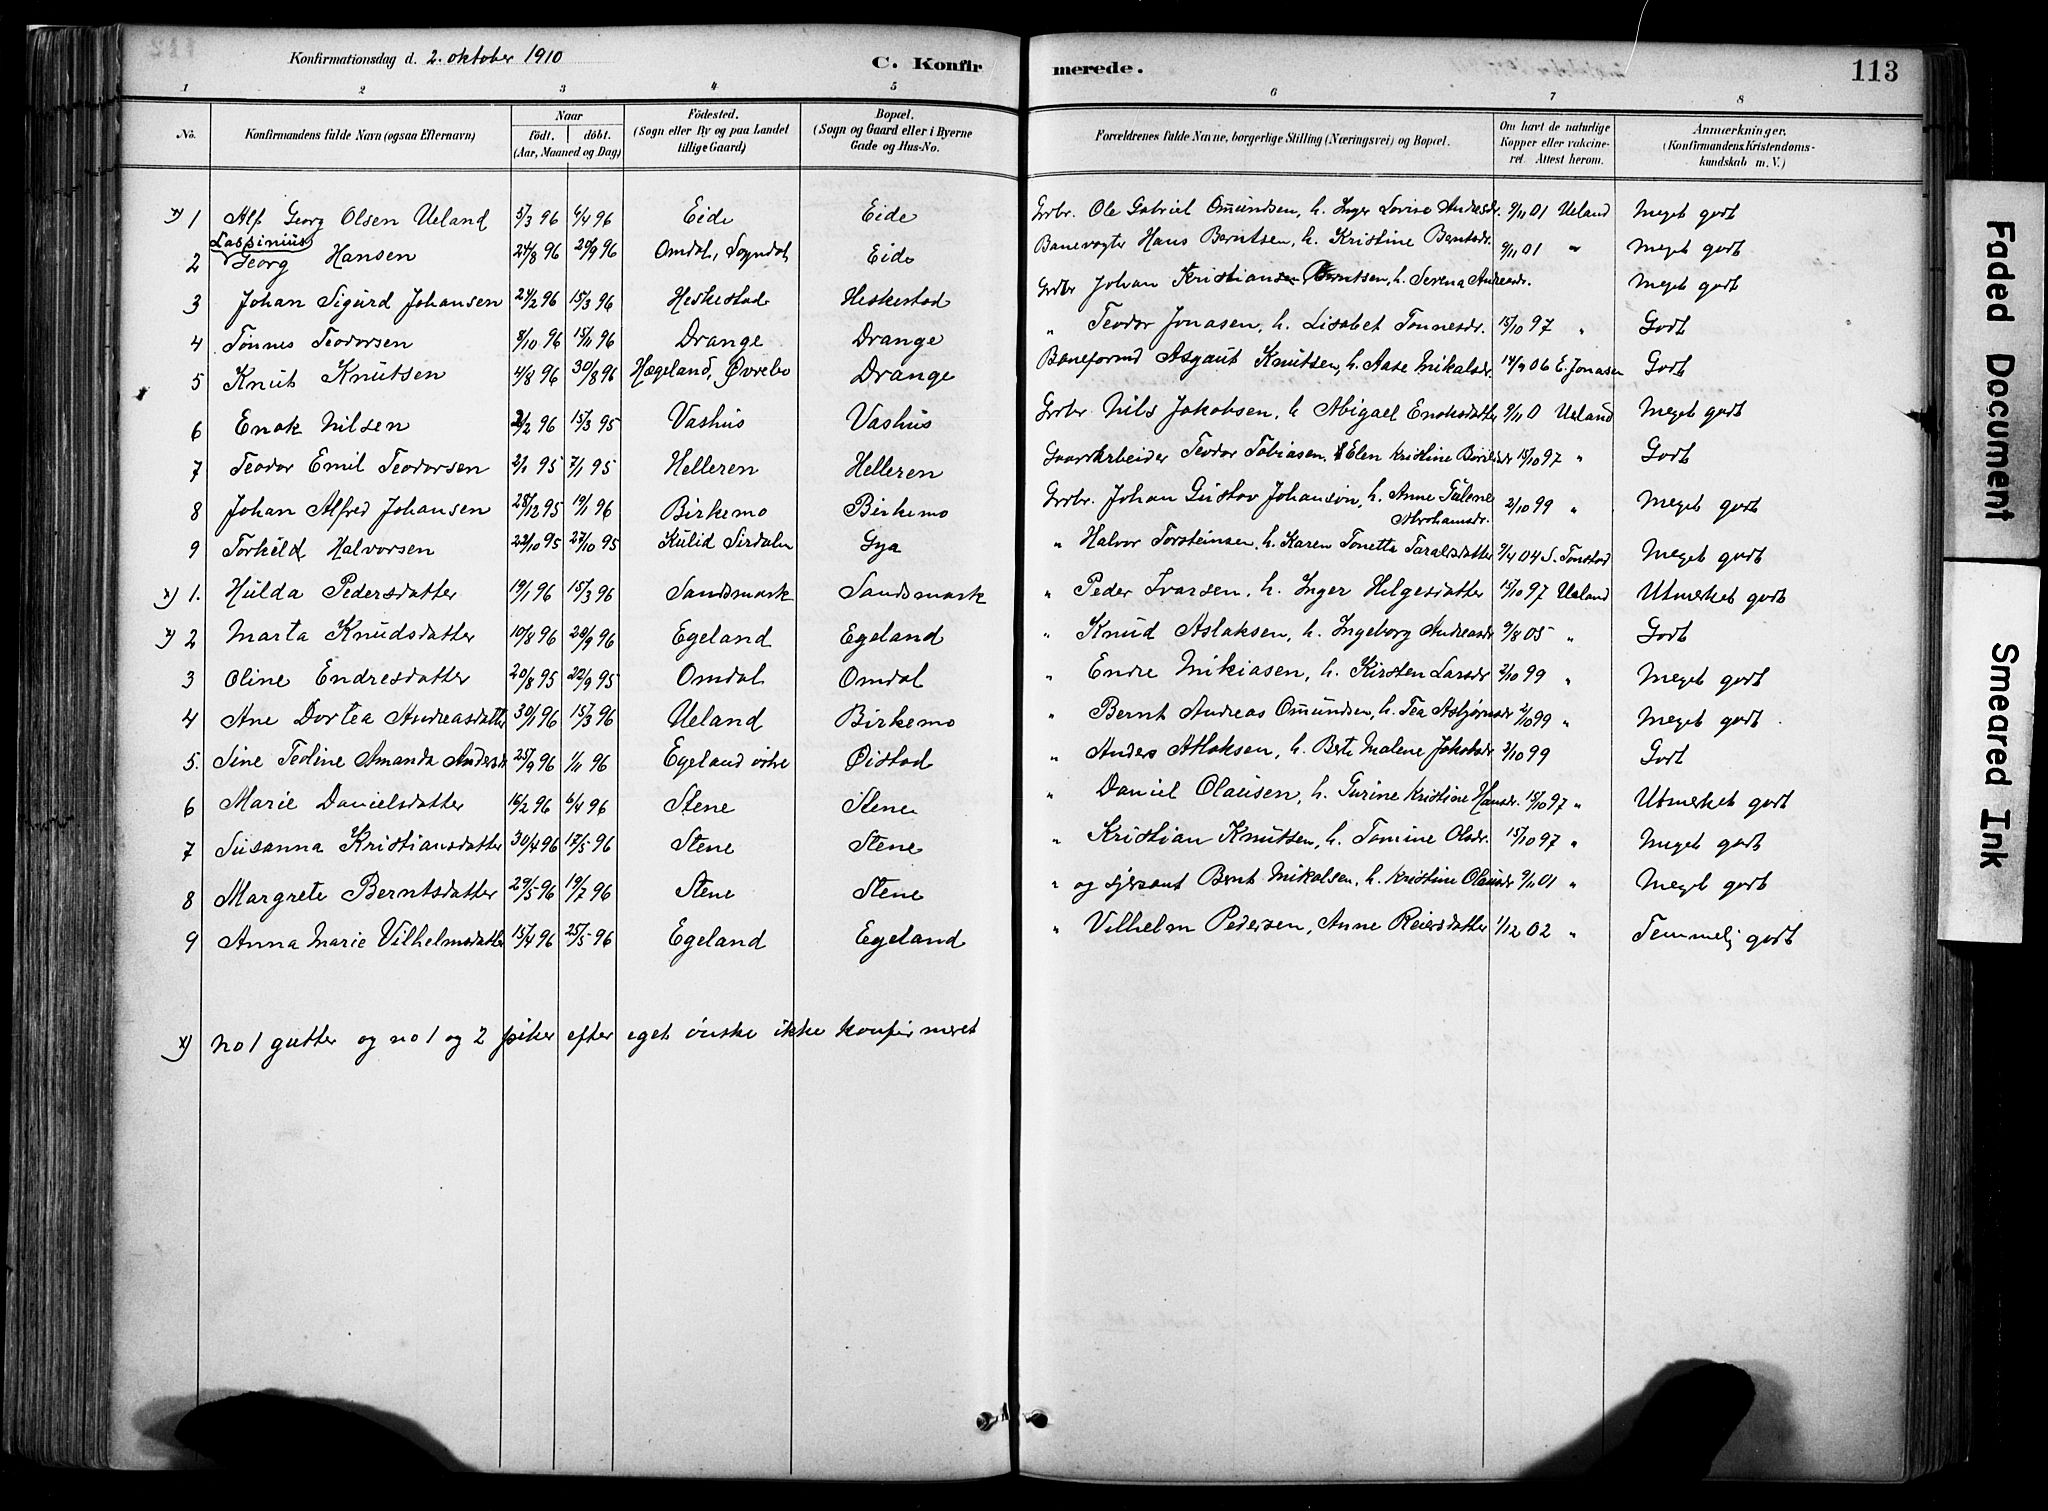 Konfirmationsdag d. 2. oktober 1910 C. Konfirmerede. 113
1 2 3 4 5 6 7 8
No. Konfirmandens fulde Navn (ogsaa Efternavn) Naar født. døbt. (Aar, Maaned og Dag) Fødested. (Sogn eller By og paa Landet tillige Gaard) Bopæl. (Sogn og Gaard eller i Byerne Gade og Hus-No. Forældrenes fulde Navne, borgerlige Stilling (Næringsvei) og Bopæl. Om havt de naturlige Kopper eller vakcineret. Attest herom. Anmærkninger. (Konfirmandens Kristendomskundskab m. V.)
x) 1 Alf Georg Olsen Ueland 5/3 96 6/4 96 Eide Eide Grbr. Ole Gabriel Omundsen, h. Inger Lovise Andresdr. 9/11 01 Ueland Meget godt
2 Lassinius Georg Hansen 24/8 96 20/9 96 Omdal, Sogndal Eide Banevogter Hans Berntsen, h. Kristine Berntsdr. 9/11 01 " Meget godt
3 Johan Sigurd Johansen 24/2 96 15/3 96 Heskestad Heskestad Grbr Johan Kristiansen Berntsen, h. Serena Andreasdr. Meget godt
4 Tønnes Teodorsen 8/10 96 15/11 96 Drange Drange " Teodor Jonasen, h. Lisabet Tønnesdr. 15/10 97 " Godt
5 Knut Knutsen 4/8 96 30/8 96 Hægeland, Øvrebø Drange Baneformd Asgaut Knutsen, h. Aase Mikalsdr. 14/9 06 E. Jonasen Godt
6 Enok Nilsen 2/2 96 15/3 95 Vashus Vashus Grbr Nils Jakobsen, h Abigael Enoksdatter 9/11 0 Ueland Meget godt
7 Teodor Emil Teodorsen 2/1 95 7/1 95 Helleren Helleren Gaardarbeider Teodor Tobiasen, Elen Kristine 15/10 97 " Godt
8 Johan Alfred Johansen 28/12 95 19/1 96 Birkemo Birkemo Grbr. Johan Gustav Johanson, h. Anne Talene Abrahamsdr. 2/10 99 " Meget godt
9 Torkild Halvorsen 22/10 95 27/10 95 Kulid Sirdalen Gya " Halvor Torsteinsen, h. Karen Tonetta Taralsdatter 9/4 04 S. Tonstad Meget godt
x) 1. Hulda Pedersdatter 19/1 96 15/3 96 Sandsmark Sandsmark " Peder Ivarsen, h. Inger Helgesdatter 15/10 97 Ueland Utmerket godt
x) 2 Marta Knudsdatter 10/8 96 20/9 96 Egeland Egeland " Knud Aslaksen, h. Ingeborg Andreasdr 9/8 05 " Godt
3 Oline Endresdatter 20/8 95 22/9 95 Omdal Omdal " Endre Mikiasen, h. Kirsten Larsdr 2/10 99 " Meget godt
4 Ane Dortea Andreasdatter 30/1 96 15/3 96 Ueland Birkemo " Bernt Andreas Omundsen, h. Tea Asbjørnsdr 2/10 99 " Meget godt
5. Sine Teoline Amanda Andersdr 25/9 96 1/11 96 Egeland østre Øistad " Anders Atlaksen, h. Berte Malene Jakobsdr 2/10 99 Godt
6 Marie Danielsdatter 16/2 96 6/4 96 Stene Stene " Daniel Olausen, h. Turine Kristine Hansdr. 15/10 97 " Utmerket godt
7 Susanna Kristiansdatter 30/4 96 17/5 96 Stene Stene " Kristian Knutsen, h. Tomine Olsdr. 15/10 97 " Meget godt
8 Margrete Berntsdatter 29/5 96 19/7 96 Stene Stene " og sjersant Bernt Mikalsen, h. Kristine Olausdr 9/11 01 " Meget godt
9 Anna Marie Vilhelmsdatter 15/4 96 25/5 96 Egeland Egeland " Vilhelm Pedersen, Anne Reiersdatter 1/12 02 " Temmelig godt
x) no 1 gutter og no 1 og 2 piker efter eget ønske ikke konfirmeret
Faded Document
Smeared Ink